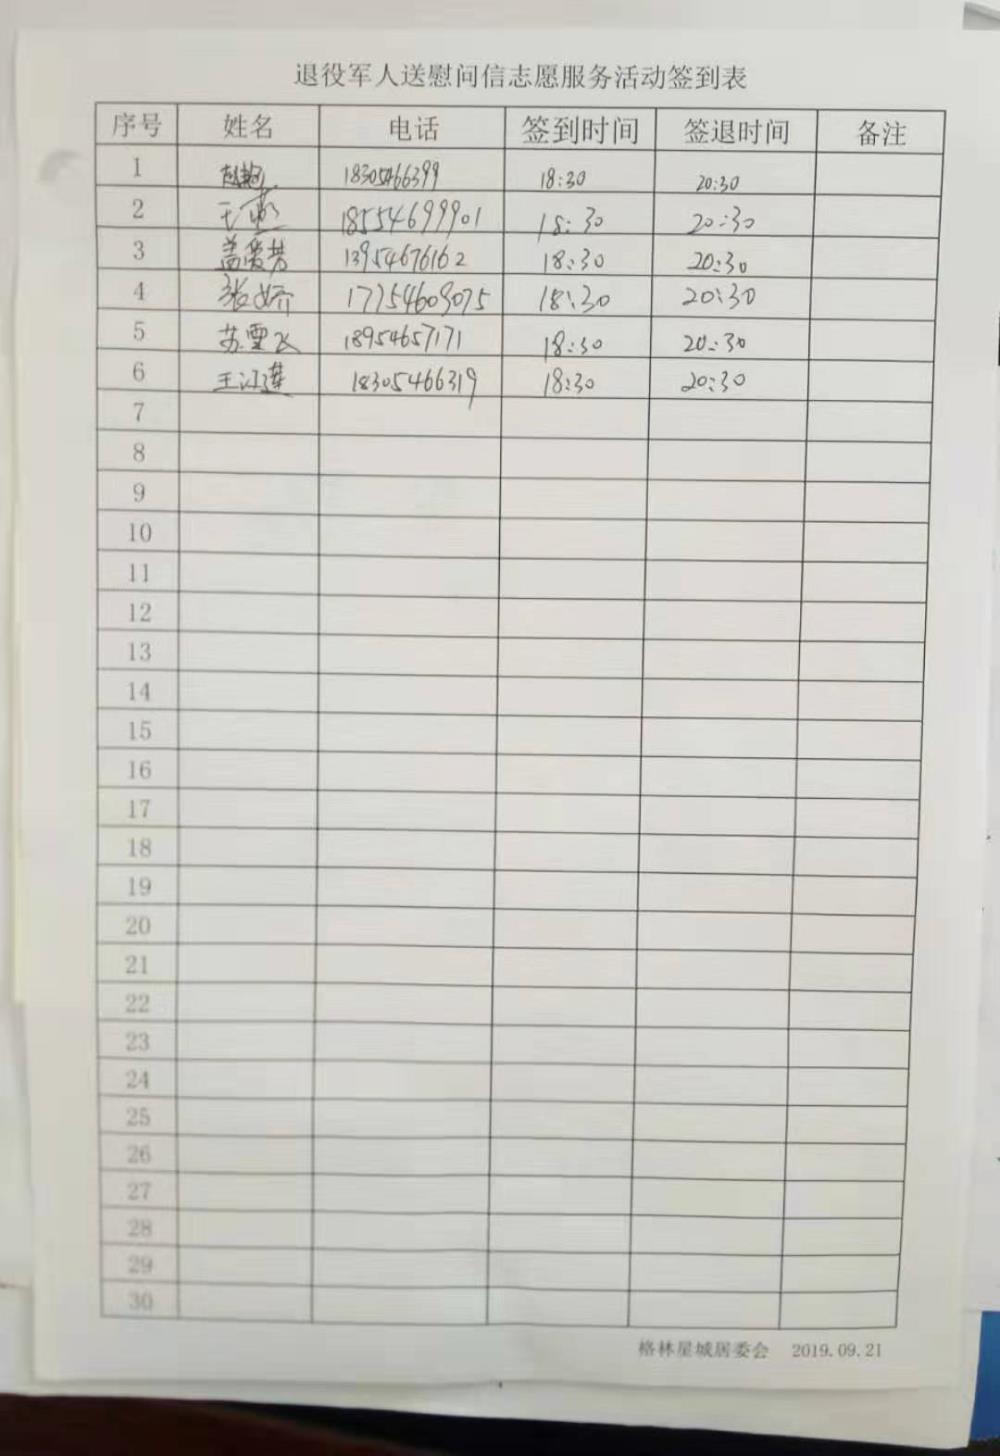 退役军人送慰问信志愿服务活动签到表
序号 姓名 电话 签到时间 签退时间 备注
1 18305466399 18:30 20:30
2 王 18554699901 18:30 20:30
3 盖爱芳 13954676162 18:30 20:30
4 张娇 17754609075 18:30 20:30
5 苏雪飞 18954657171 18:30 20:30
6 王江莲 18305466319 18:30 20:30
7
8
9
10
11
12
13
14
15
16
17
18
19
20
21
22
23
24
25
26
27
28
29
30
格林星城居委会 2019.09.21